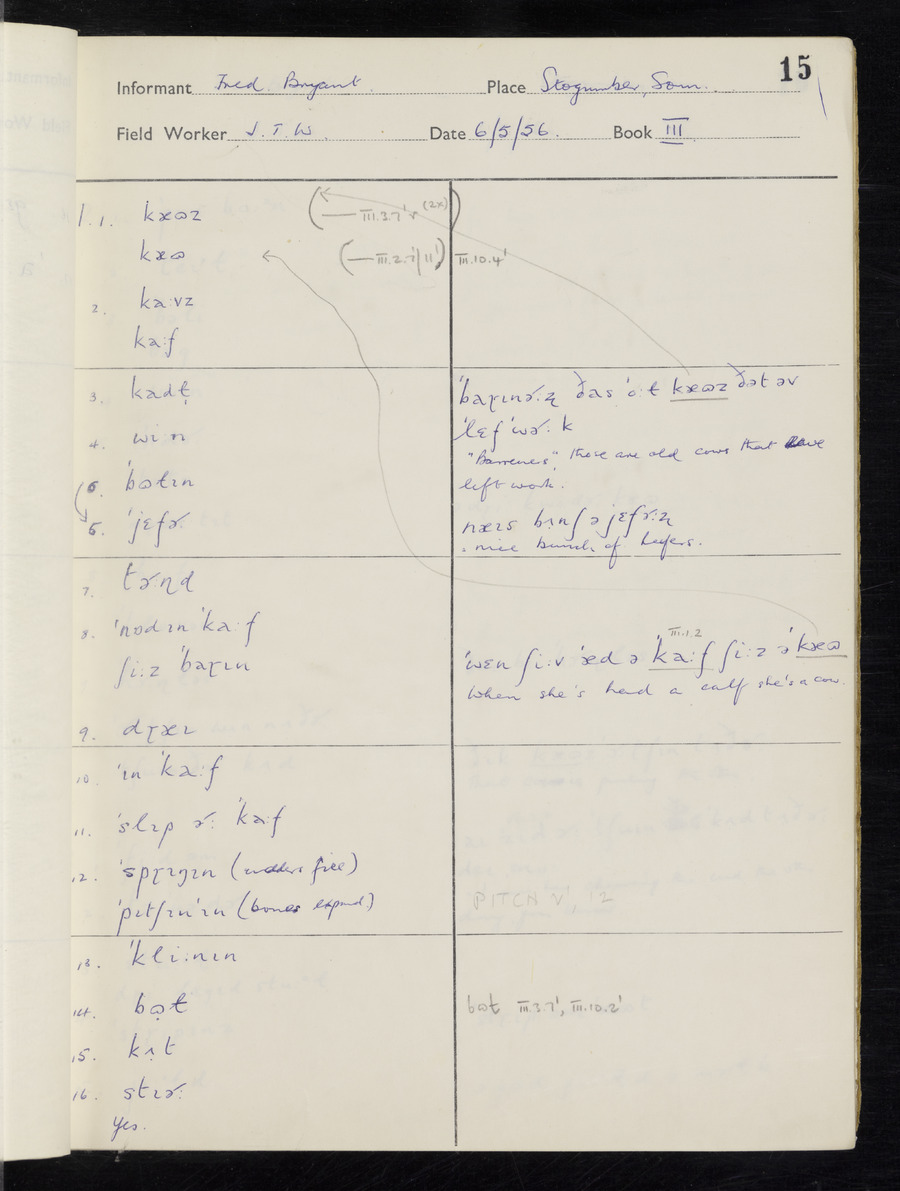 15
Informant Fred Bryant Place Stogumber, Som.
Field Worker J.T.W. Date 6/5/56. Book III
1.1. kæɷz (— III.3.7' (2x))
kæɷ (— III.2.7/11') III.10.4'
2. ka:vz
ka:f
3. kadḷ
'baɽɪnə˞:ɀ ðas 'o:t kæɷz ðət əv
4. wi:n
'lɛf 'wə˞:k
"Barreners", those are old cows that have
6. 'bɷtɪn
left work.
5. 'jɛfə˞:
næɪs bɪnʃ ə jɛfə˞:ɀ
nice bunch of heifers.
7. tə˞:ɳd
8. 'nɒdɪn 'ka:f
III.1.2
ʃi:z 'baɽɪn
'wɛn ʃi:v 'æd ə 'ka:f ʃi:z ə 'kæɷ
When she's had a calf she's a cow.
9. dɽæɪ
10. 'ɪn 'ka:f
11. 'slɪp ə˞: 'ka:f
12. 'spɽɪŋɪn (udders fill)
'pɪtʃɪn 'ɪn (bones expand.)
PITCH V', 12
13. 'kli:nɪn
14. bɷt
bɷt III.3.7', III.10.2'
15. kɪt
16. stɪə˞:
Yes.